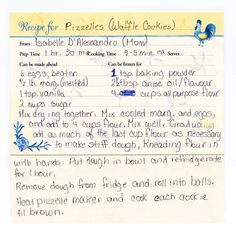 Recipe for Pizzelles (Waffle Cookies)
From Isabelle D'Alessandro (Mom)
Prep Time 1 hr. 30 min Cooking 3-5 min ea Serves
Can be made ahead Can be frozen
6 eggs, beaten 1 tsp baking powder
1/2 lb. marg. (melted) 2 tbsp anise oil/flavour
1 tsp. vanilla 4 cups all purpose flour
2 cups sugar
Mix dry together. Mix cooled marg. and eggs,
and add to 4 cups flour. Mix well. Gradually
add as much of the last cup flour as necessary
to make stiff dough, kneading flour in
with hands. Put dough in bowl and refridgerate
for 1 hour.
Remove dough from fridge and roll into balls.
Heat pizzelle maker and cook each cookie
til brown.